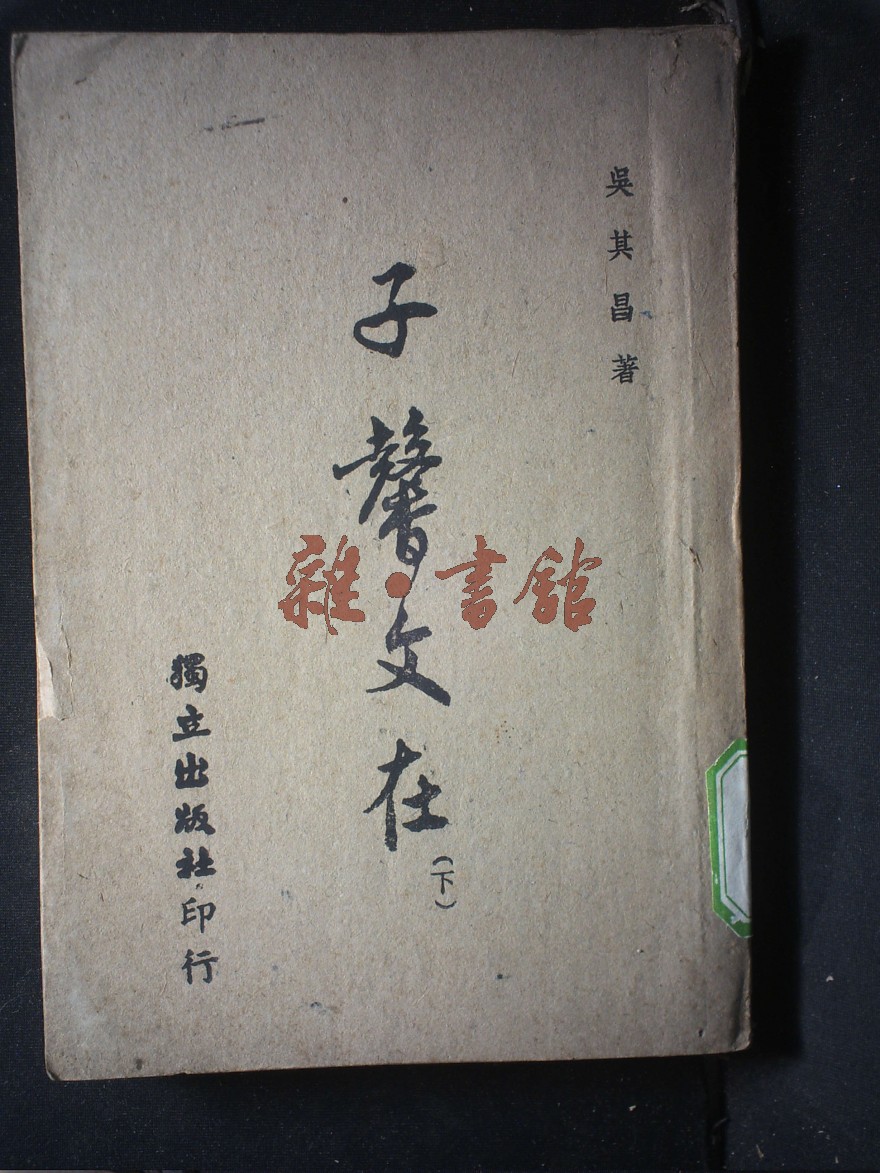 吳其昌著
子馨文在
（下）
獨立出版社印行
雜·書館